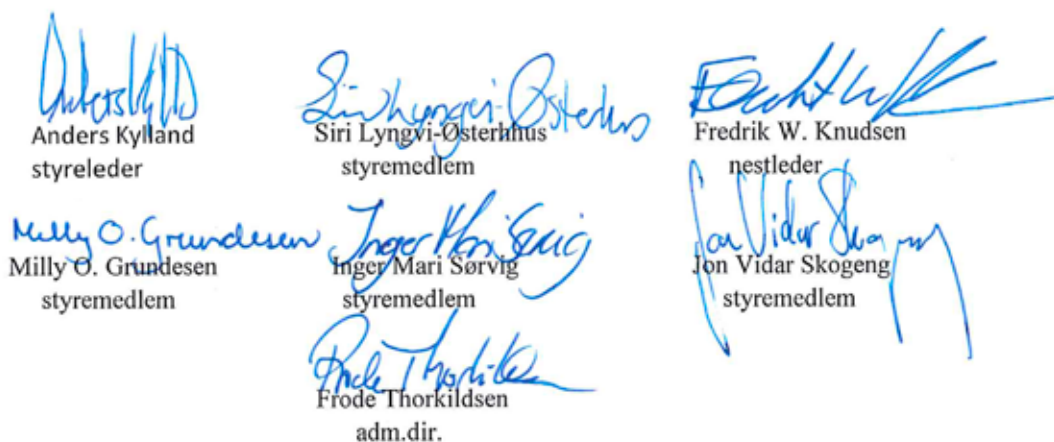 Anders Kylland
styreleder
Siri Lyngvi-Østerhhus
styremedlem
Fredrik W. Knudsen
nestleder
Milly O. Grundesen
Milly O. Grundesen
styremedlem
Inger Mari Sørvig
styremedlem
Jon Vidar Skogeng
styremedlem
Frode Thorkildsen
adm.dir.